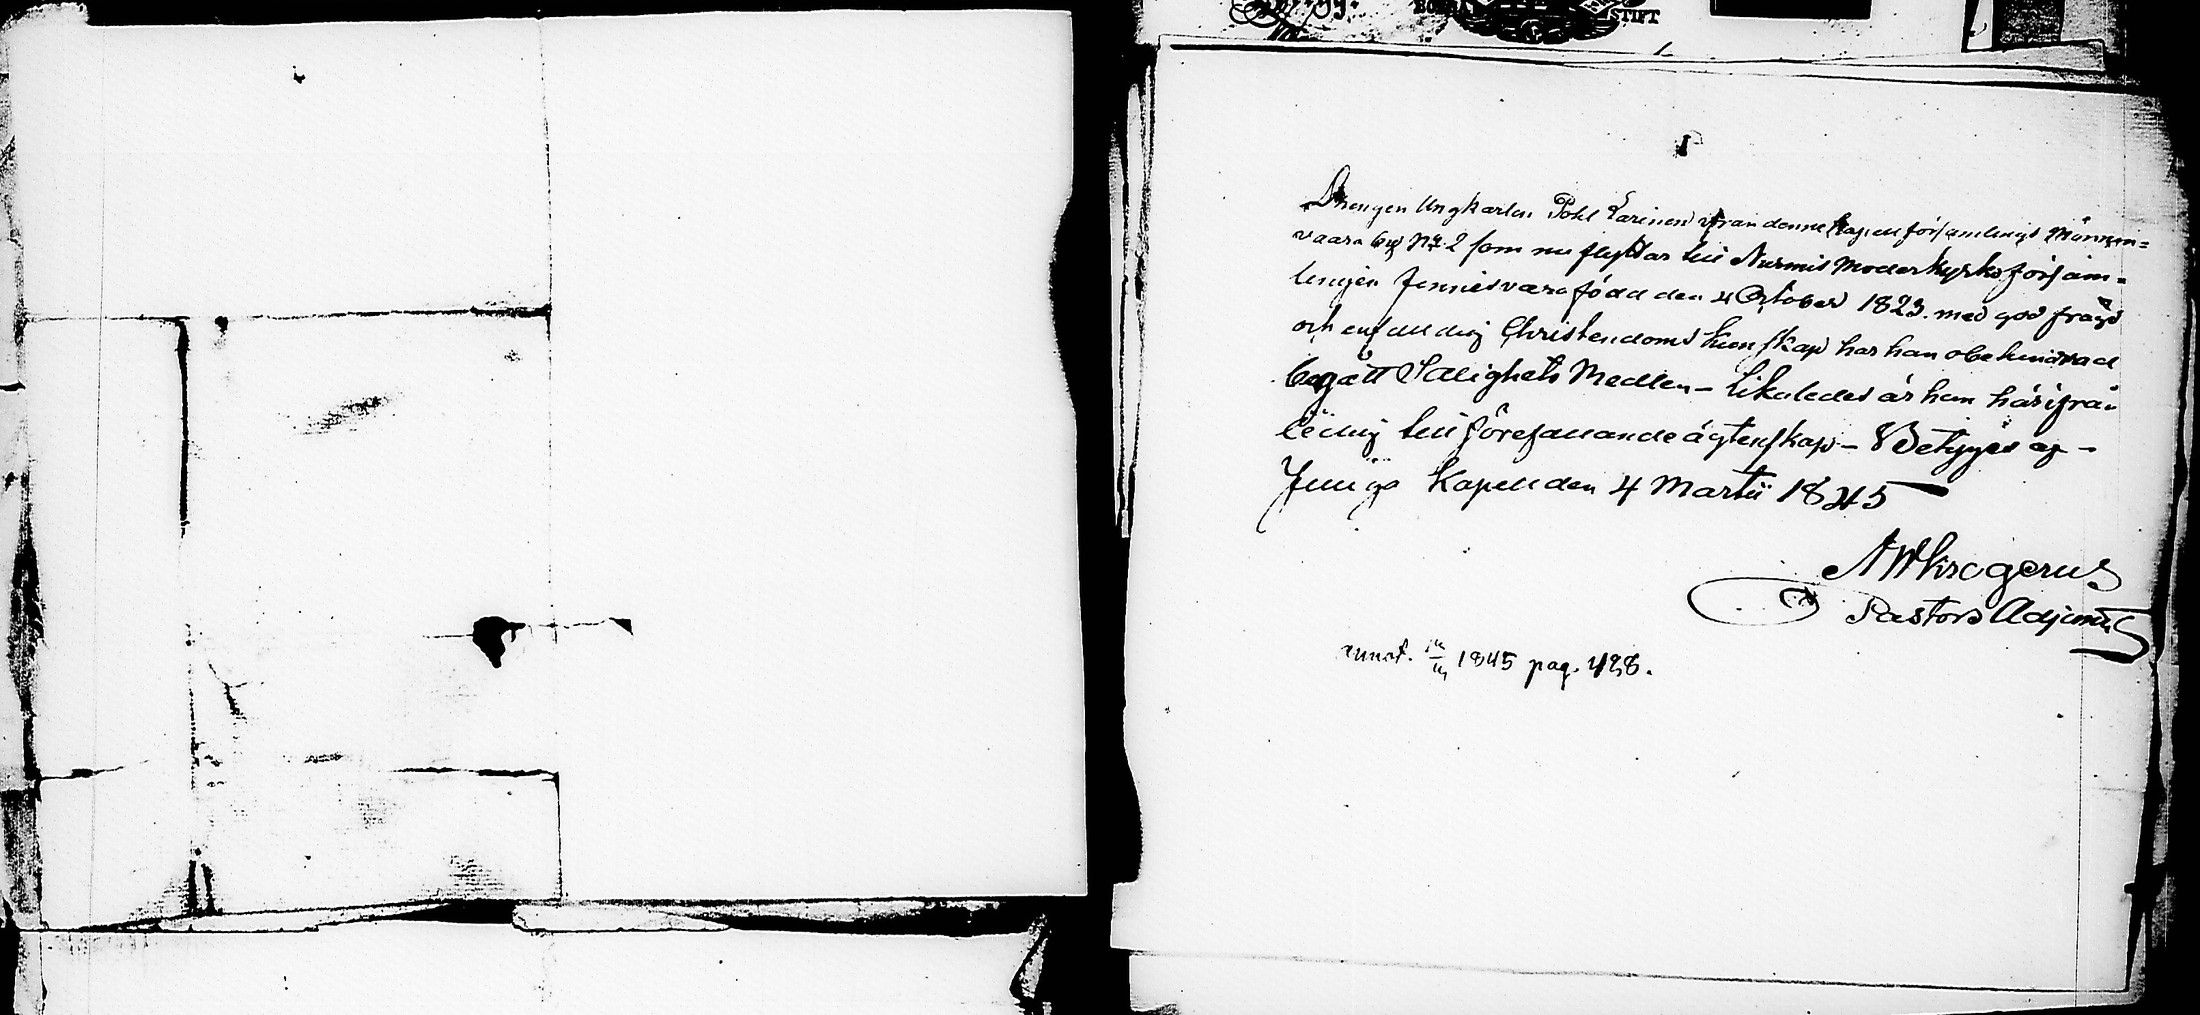 STIFT
1
Drengen Ungkarlen Pohl Karinen ifrån denne Kapell församlings Männin=
vaara by N:2 som nu flyttar till Nurmis Moderkyrko församm=
lingen finnes vara född den 4 October 1823. med god frägd
och enfalldig Christendoms kunskap har han obehindrad
begått Salighets Medlen – Likaledes är han härifrån
ledig till förefallande ägtenskap – Betygas af –
Juuga Kapell den 4 Martii 1845
A W Krogerus
Pastors Adjunct
annot. 1845 pag. 428.